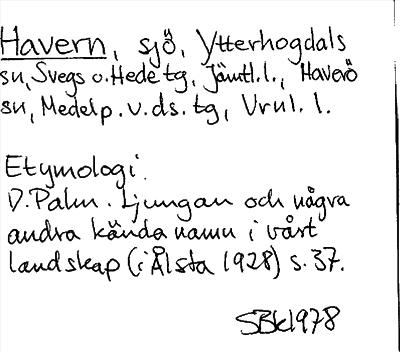 Havern, sjö, Ytterhogdals
sn, Svegs o. Hede tg, Jämtl. l., Haverö
sn, Medelp. v. ds. tg, Vrnl. l.
Etymologi.
D. Palm. Ljungan och några
andra kända namn i vårt
landskap (i Ålsta 1928) s. 37.
SBk 1978